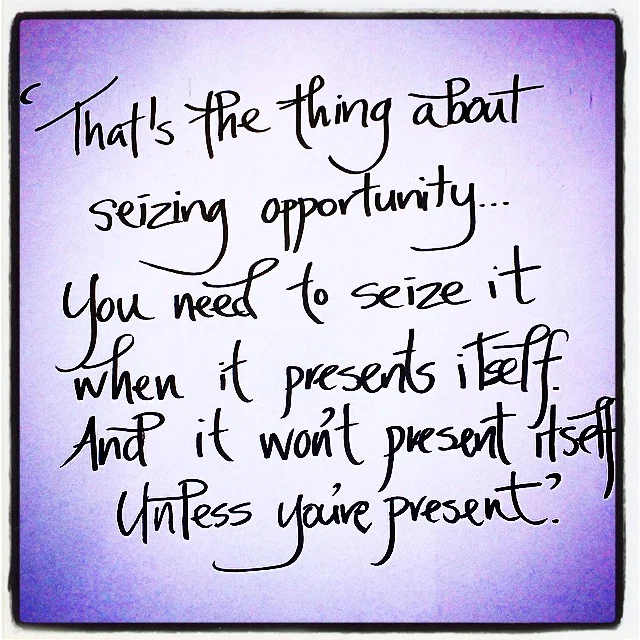 'That's the thing about
seizing opportunity...
You need to seize it
when it presents itself.
And it won't present itself
Unless you're present'.